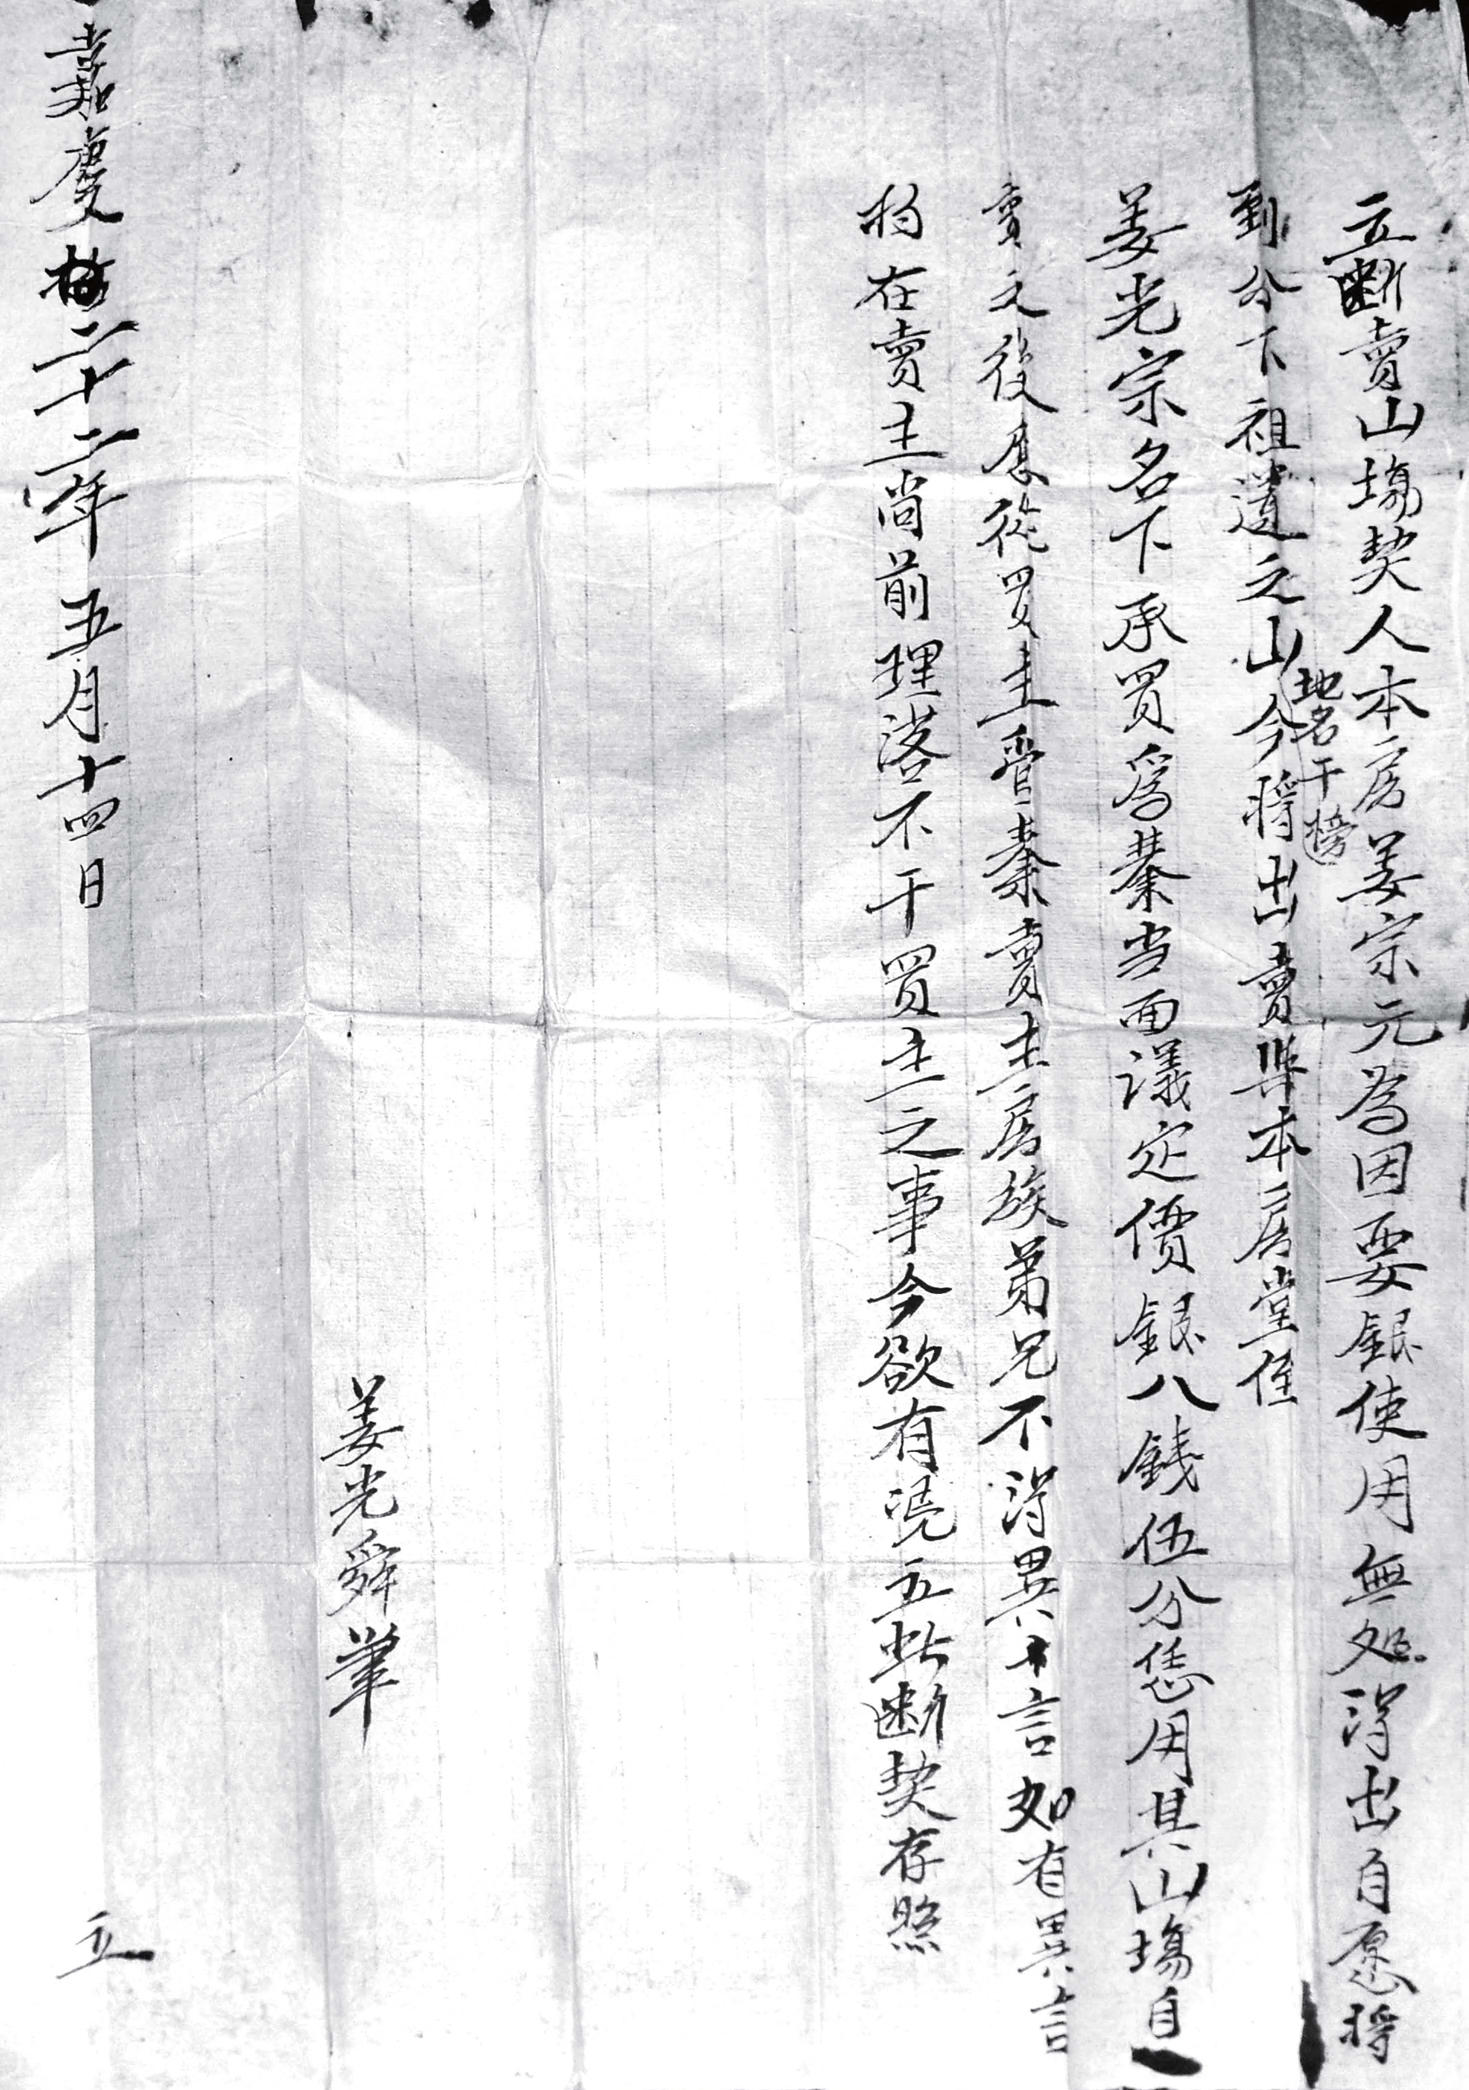 立断賣山塲契人本房姜宗元為因要銀使用無处淂出自愿將
到分下祖遺之山今將出賣與本房堂侄
地名干榜
姜光宗名下承買爲業当面議定價銀八錢伍分恁用其山塲自
賣之後應從買主管業賣主房族弟兄不淂異言如有異言
拘在賣主尚前理落不干買主之事今欲有凴立此断契存照
姜光舜筆
嘉慶二十二年五月十四日 立